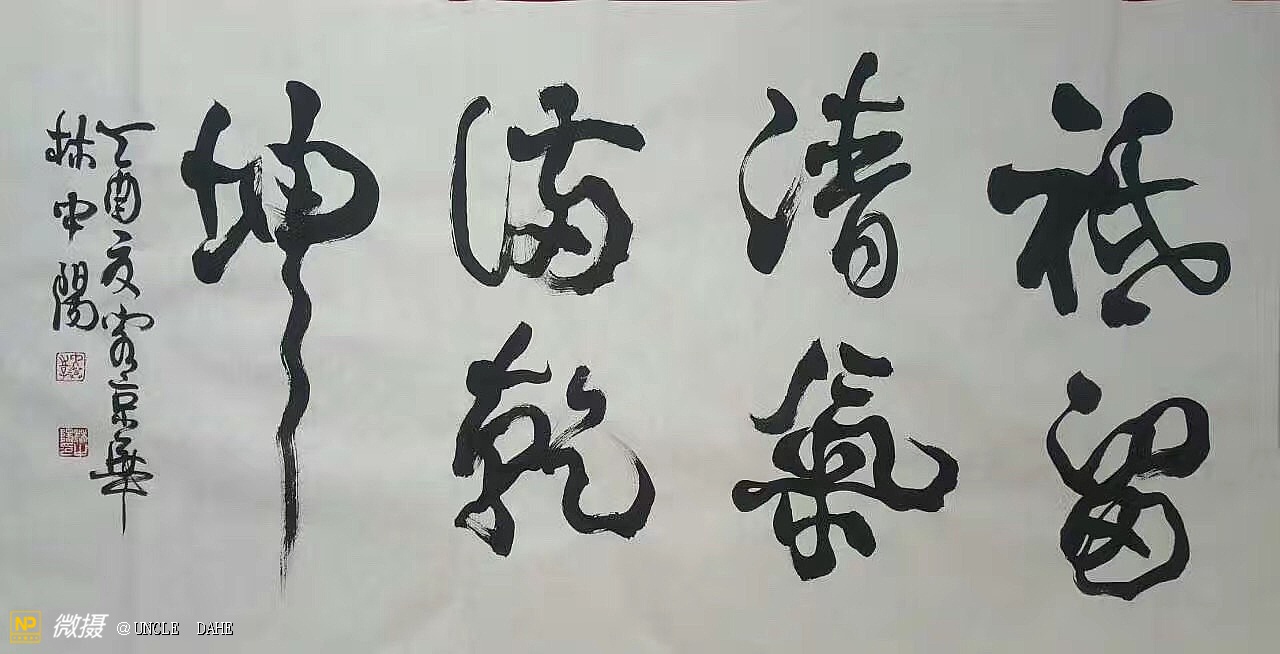 祗留
清氣
滿乾
坤
丁酉夏客京華
林中陽
NP 微摄 @UNCLE DAHE